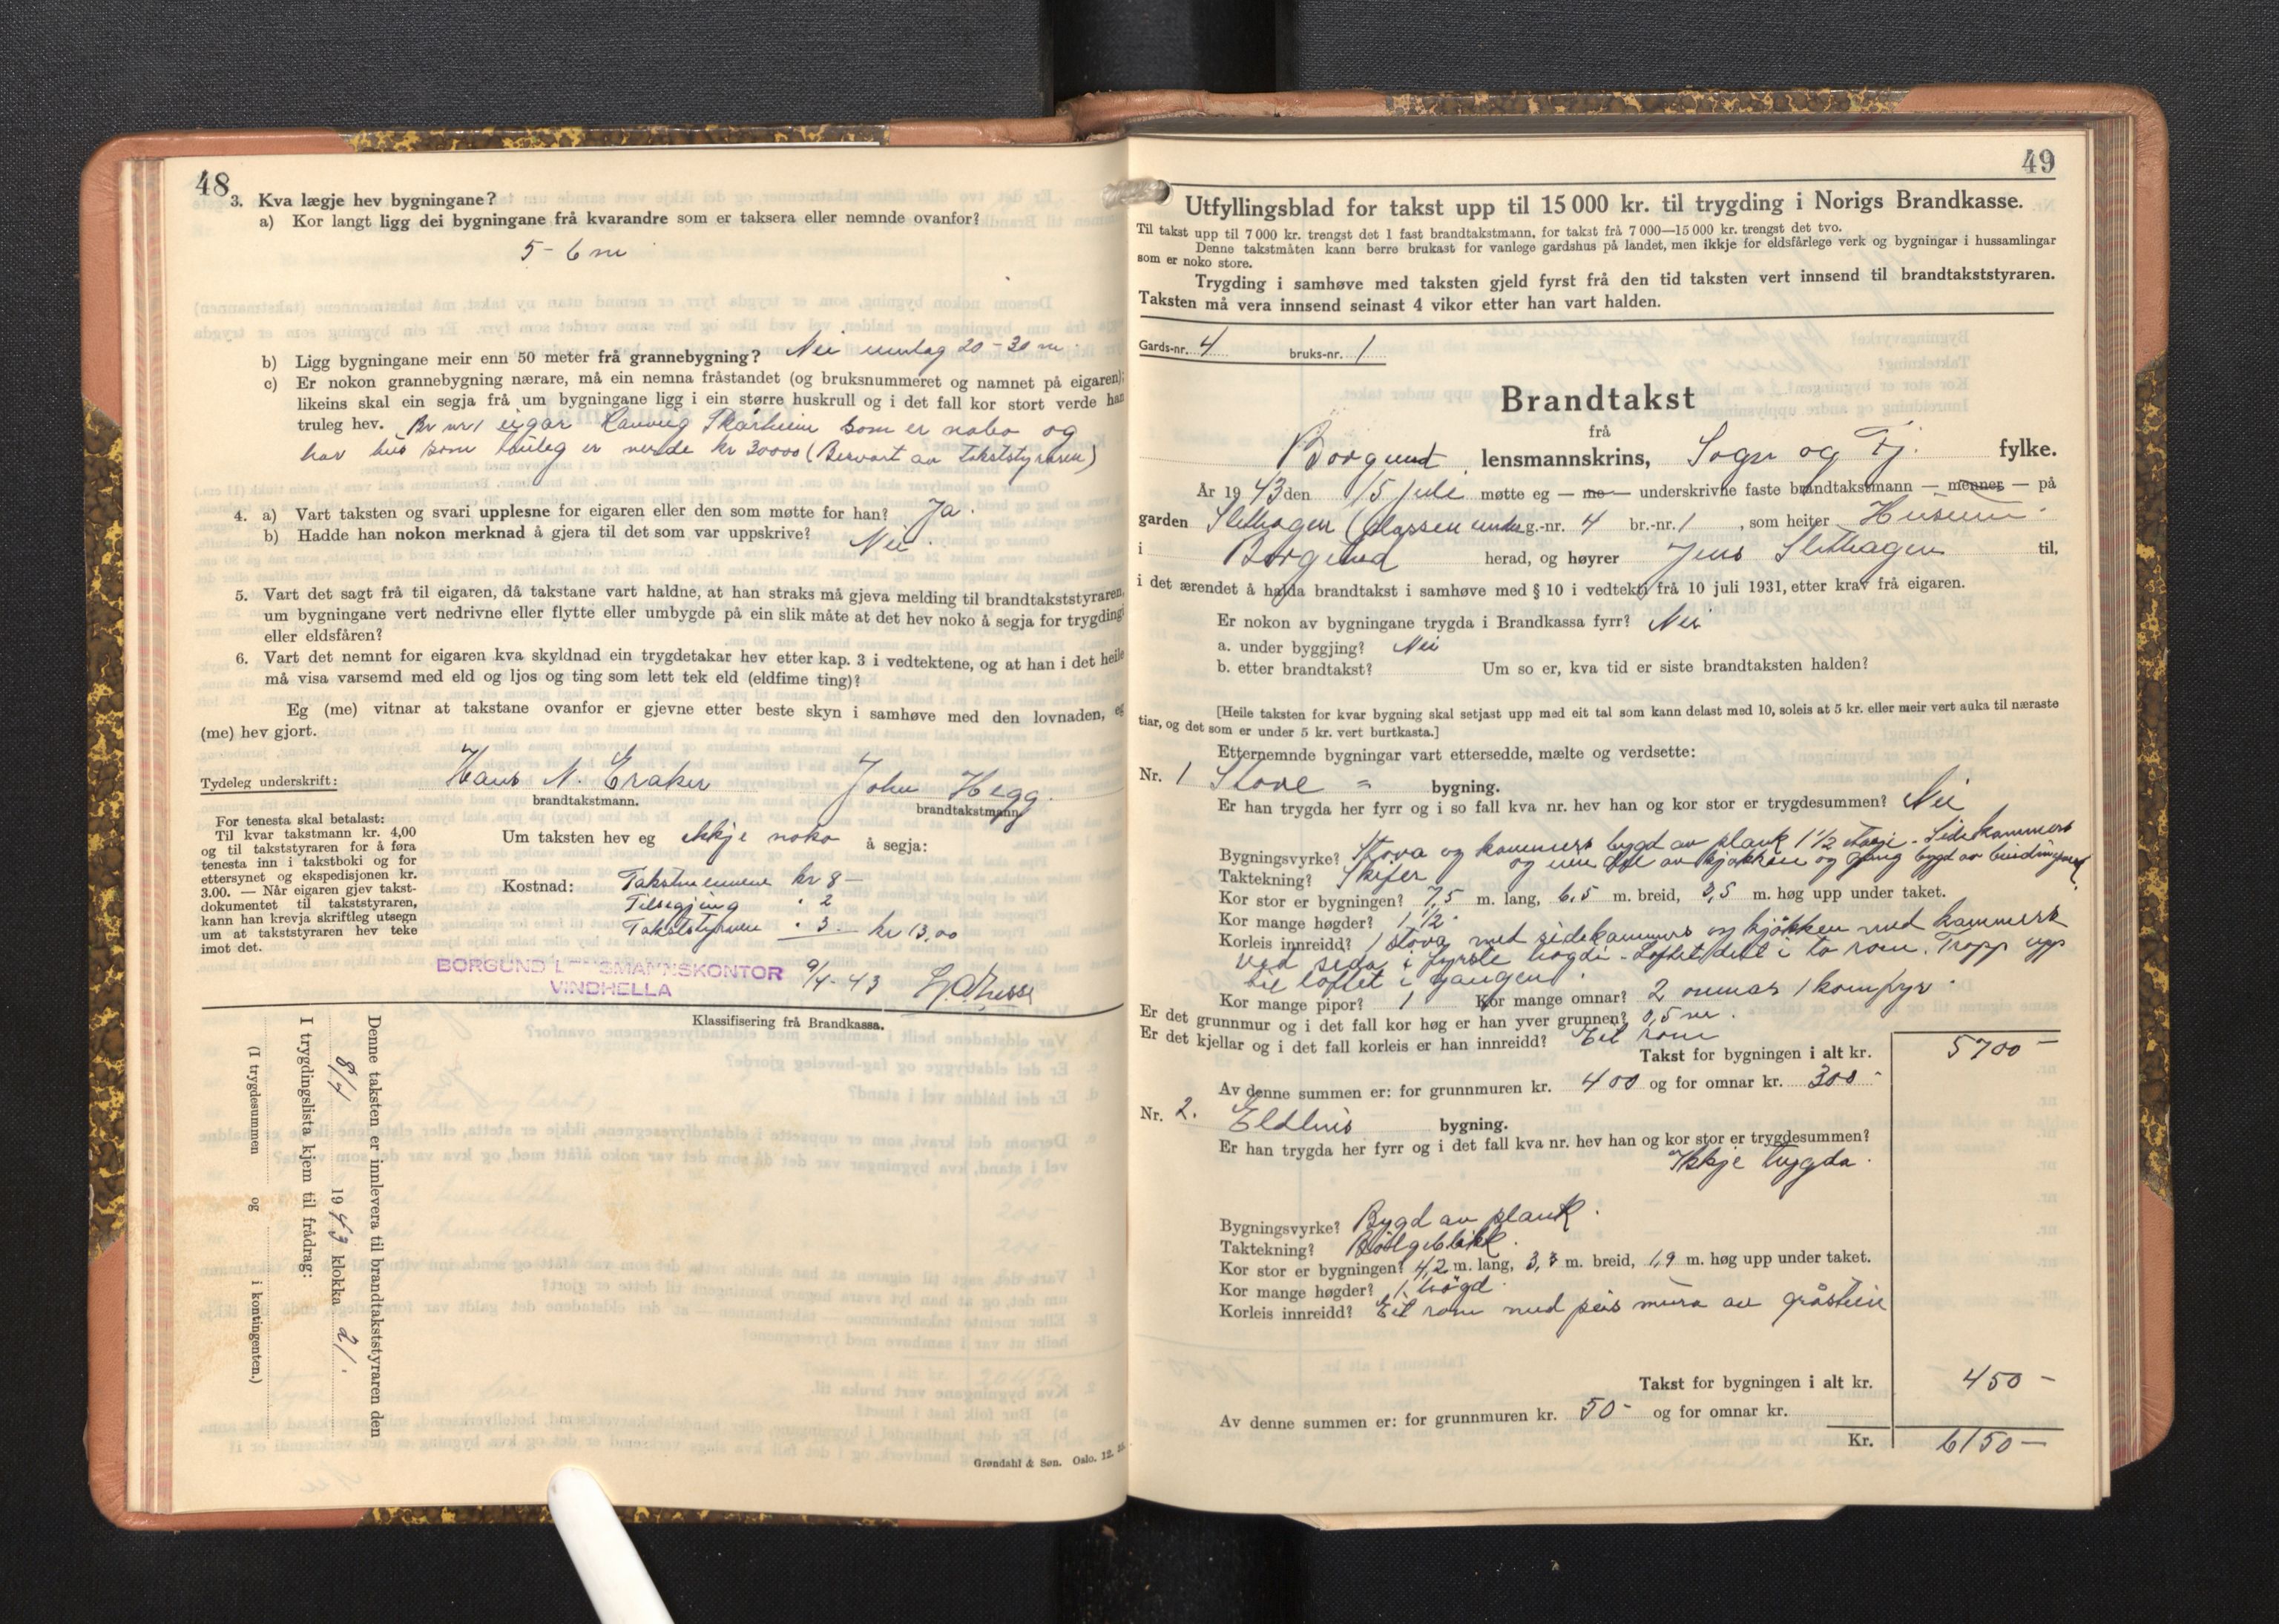 48
3. Kva lægje hev bygningane?
a) Kor langt ligg dei bygningane frå kvarandre som er taksera eller nemnde ovanfor?
5 - 6 m
b) Ligg bygningane meir enn 50 meter frå grannebygning? Nei umlag 20 - 30 m.
c) Er nokon grannebygning nærare, må ein nemna fråstandet (og bruksnummeret og namnet på eigaren);
likeins skal ein segja frå um bygningane ligg i ein større huskrull og i det fall kor stort verde han
truleg hev. Br nr 1 eigar Rannveig Skarheim som er nabo og
har hus som truleg er verde kr 30000 (Besvart av takststyraren)
4. a) Vart taksten og svari upplesne for eigaren eller den som møtte for han? Ja.
b) Hadde han nokon merknad å gjera til det som var uppskrive? Nei.
5. Vart det sagt frå til eigaren, då takstane vart haldne, at han straks må gjeva melding til brandtakststyraren,
um bygningane vert nedrivne eller flytte eller umbygde på ein slik måte at det hev noko å segja for trygding
eller eldsfåren?
6. Vart det nemnt for eigaren kva skyldnad ein trygdetakar hev etter kap. 3 i vedtektene, og at han i det heile
må visa varsemd med eld og ljos og ting som lett tek eld (eldfime ting)?
Eg (me) vitnar at takstane ovanfor er gjevne etter beste skyn i samhøve med den lovnaden, eg
(me) hev gjort.
Tydeleg underskrift: Hans N. Eraker John Hegg.
brandtakstmann. brandtakstmann
For tenesta skal betalast:
Til kvar takstmann kr. 4,00
og til takststyraren for å føra
tenesta inn i takstboki og for
ettersynet og ekspedisjonen kr.
3.00. — Når eigaren gjev takst-
dokumentet til takststyraren,
kann han krevja skriftleg utsegn
um at takststyraren hev teke
imot det.
Um taksten hev eg ikkje noko å segja:
Kostnad: Takstmennene kr 8 -
Tilsegjing " 2
Takststyraren " 3 - kr 13,00
BORGUND LENSMANNSKONTOR
VINDHELLA
9/7 - 43
Klassifisering frå Brandkassa.
Denne taksten er innlevera til brandtakststyraren den
8/7 1943 klokka 21.
I trygdingslista kjem til frådrag:
(I trygdesummen og i kontingenten.)
Grøndahl & Søn. Oslo. 12.
49
Utfyllingsblad for takst upp til 15 000 kr. til trygding i Norigs Brandkasse.
Til takst upp til 7 000 kr. trengst det 1 fast brandtakstmann, for takst frå 7 000—15 000 kr. trengst det tvo.
Denne takstmåten kann berre brukast for vanlege gardshus på landet, men ikkje for eldsfårlege verk og bygningar i hussamlingar
som er noko store.
Trygding i samhøve med taksten gjeld fyrst frå den tid taksten vert innsend til brandtakststyraren.
Taksten må vera innsend seinast 4 vikor etter han vart halden.
Gards-nr. 4 bruks-nr. 1
Brandtakst
frå
Borgund lensmannskrins, Sogn og Fj. fylke.
År 1943 den 15 juli møtte eg — me — underskrivne faste brandtakstmann — menner — på
garden Slethagen (plassen under g.-nr. 4 br.-nr. 1, som heiter Husum.
i Borgund herad, og høyrer Jens Slethagen til,
i det ærendet å halda brandtakst i samhøve med § 10 i vedtekti frå 10 juli 1931, etter krav frå eigaren.
Er nokon av bygningane trygda i Brandkassa fyrr? Nei
a. under byggjing? Nei
b. etter brandtakst? Um so er, kva tid er siste brandtaksten halden?
[Heile taksten for kvar bygning skal setjast upp med eit tal som kann delast med 10, soleis at 5 kr. eller meir vert auka til næraste
tiar, og det som er under 5 kr. vert burtkasta.]
Etternemnde bygningar vart ettersedde, mælte og verdsette:
Nr. 1 Stove = bygning.
Er han trygda her fyrr og i so fall kva nr. hev han og kor stor er trygdesummen? Nei
Bygningsvyrke? Stova og kammers bygd av plank 1 1/2 etasje. Sidekammers
og ein del av kjøkken og gang bygd av bindingsverk.
Taktekning? Skifer
Kor stor er bygningen? 7,5 m. lang, 6,5 m. breid, 3,5 m. høg upp under taket.
Kor mange høgder? 1 1/2.
Korleis innreidd? 1 stova med sidekammers og kjøkken med kammers
ved sida i fyrste høgdi - Loftet delt i to rom. Tropp upp
til loftet i gangen.
Kor mange pipor? 1 Kor mange omnar? 2 omnar 1 komfyr.
Er det grunnmur og i det fall kor høg er han yver grunnen? 0,5 m.
Er det kjellar og i det fall korleis er han innreidd? Eit rom
Takst for bygningen i alt kr. 5700 -
Av denne summen er: for grunnmuren kr. 400 og for omnar kr. 300 -
Nr. 2. Eldhus bygning.
Er han trygda her fyrr og i det fall kva nr. hev han og kor stor er trygdesummen?
Ikkje trygda.
Bygningsvyrke? Bygd av plank.
Taktekning? Bølgeblikk.
Kor stor er bygningen? 4,2 m. lang, 3,3 m. breid, 1,9 m. høg upp under taket.
Kor mange høgder? 1 høgd.
Korleis innreidd? Eit rom med peis mura av gråstein
Takst for bygningen i alt kr. 450 -
Av denne summen er: for grunnmuren kr. 50 - og for omnar kr.
Kr. 6150 -